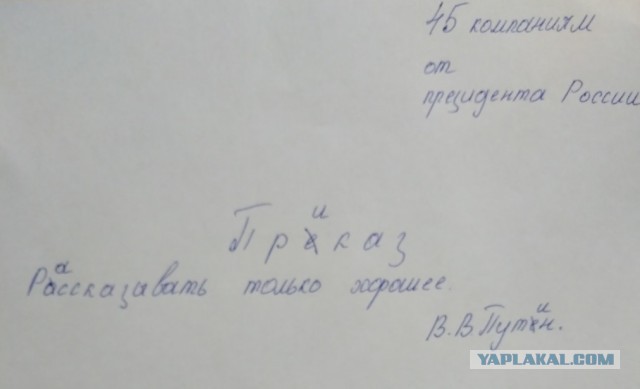 45 компаниям
от
президента России
Приказ
Рассказывать только хорошее.
В.В.Путин.
YAPLAKAL.COM